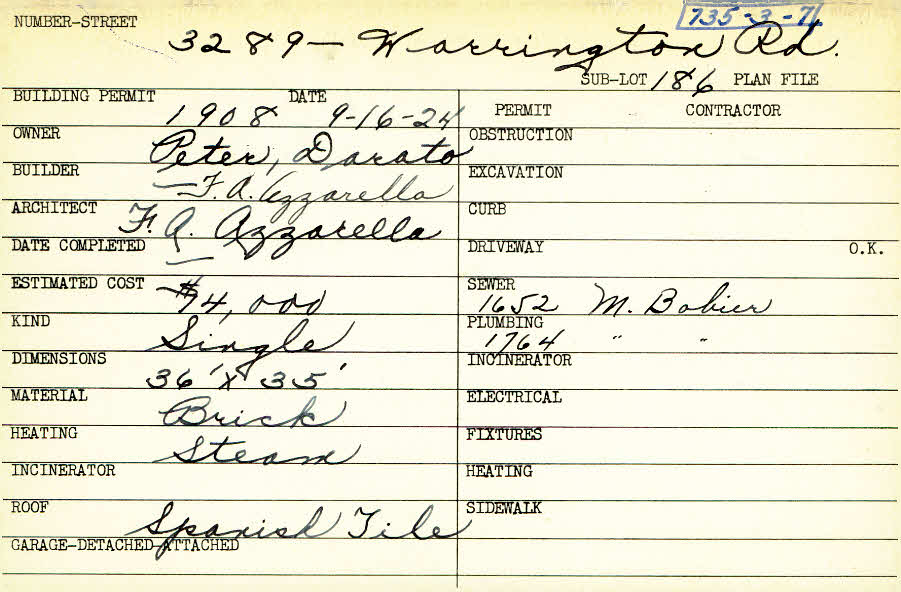 NUMBER-STREET
735-3-71
3289 - Warrington Rd.
SUB-LOT 186 PLAN FILE
BUILDING PERMIT DATE
1908 9-16-24
PERMIT CONTRACTOR
OWNER Peter, Darato
OBSTRUCTION
BUILDER - F. A. Azzarella
EXCAVATION
ARCHITECT F. A. Azzarella
CURB
DATE COMPLETED —
DRIVEWAY O.K.
ESTIMATED COST
SEWER 1652 M. Bobier
KIND Single
PLUMBING 1764 " "
DIMENSIONS 36' x 35'
INCINERATOR
MATERIAL Brick
ELECTRICAL
HEATING Steam
FIXTURES
INCINERATOR
HEATING
ROOF Spanish Tile
SIDEWALK
GARAGE-DETACHED-ATTACHED